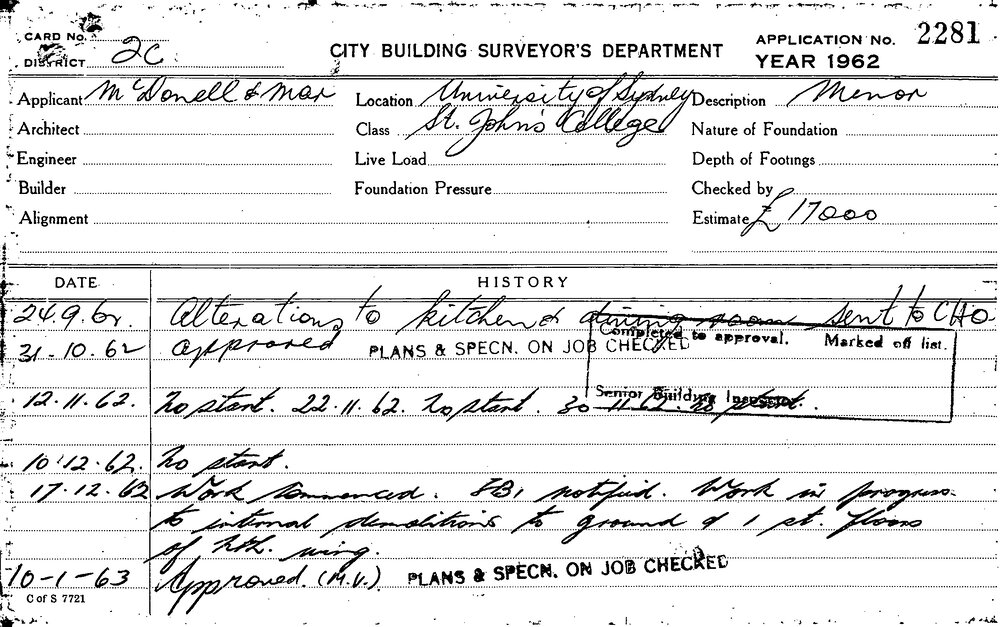 CARD No.
DISTRICT 2C
CITY BUILDING SURVEYOR'S DEPARTMENT
APPLICATION No. 2281
YEAR 1962
Applicant McDonell & Mar
Location University of Sydney
Description Menor
Architect
Class St. John's College
Nature of Foundation
Engineer
Live Load
Depth of Footings
Builder
Foundation Pressure
Checked by
Alignment
Estimate £17000
DATE HISTORY
24.9.62. Alterations to kitchen & dining room sent to CHO
31-10.62 approved PLANS & SPECN. ON JOB CHECKED
Completed to approval. Marked off list.
Senior Building Inspector.
12.11.62. No start. 22.11.62. No start. 30.11.62. No start.
10.12.62. No start.
17.12.62 Work commenced. SBI notified. Work in progress
to internal demolitions to ground & 1 st. floors
of nth. wing.
10-1-63 Approved. (M.V.) PLANS & SPECN. ON JOB CHECKED
C of S 7721